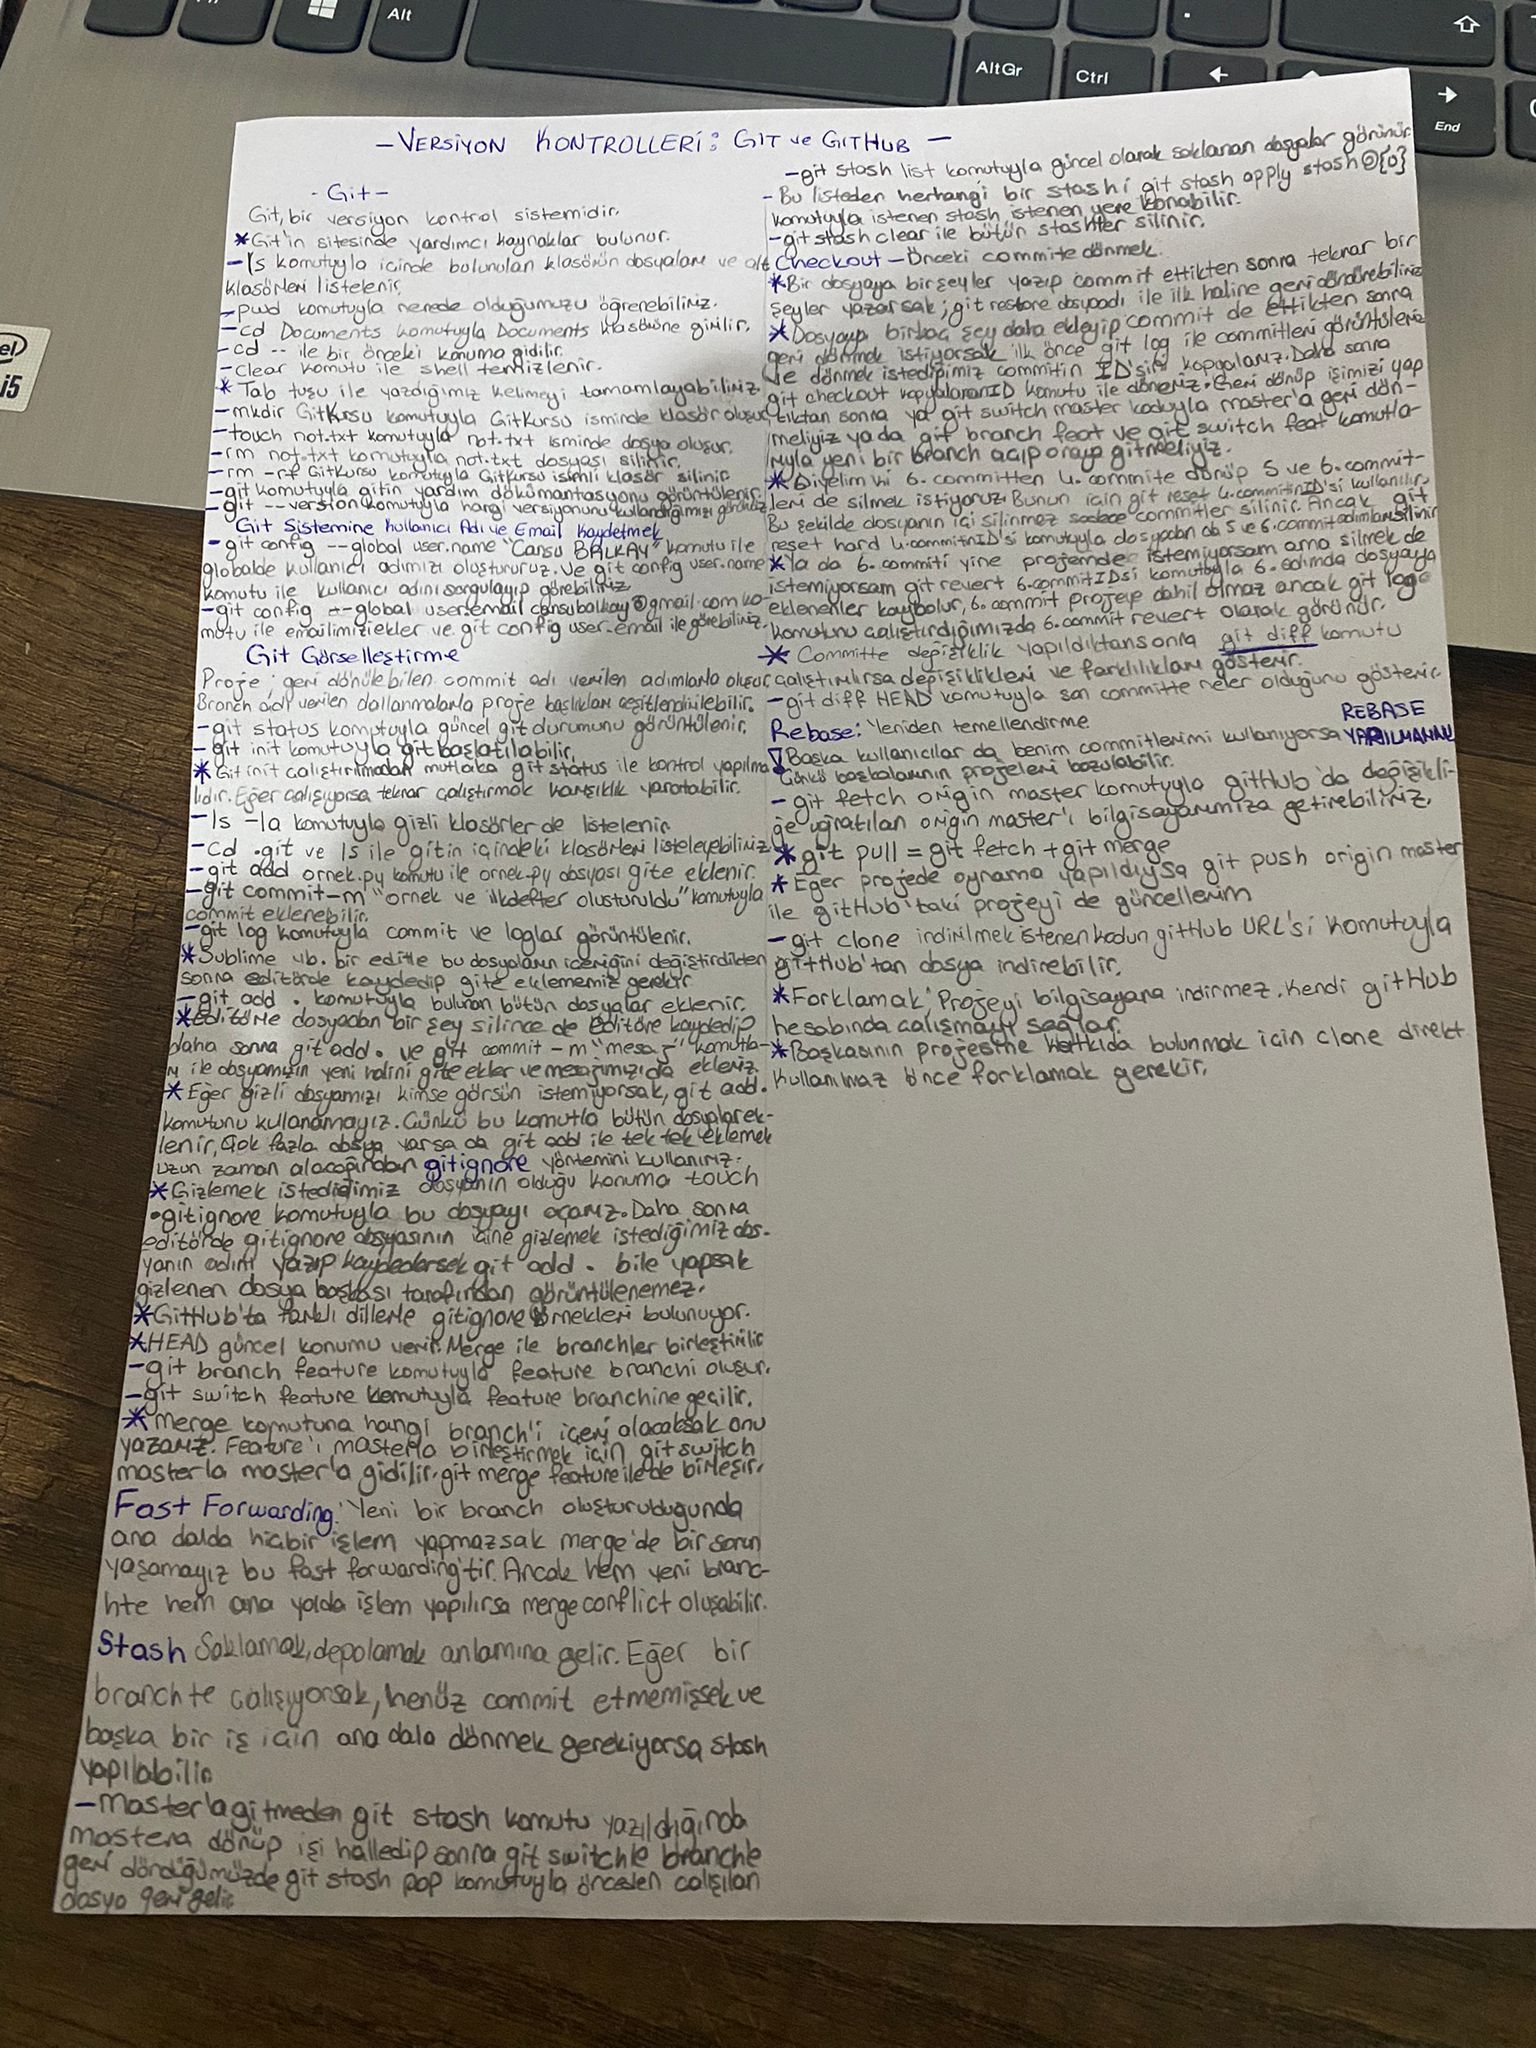 Alt
AltGr
Ctrl
End
i5
- VERSİYON KONTROLLERİ: GIT ve GITHUB -
- Git -
Git, bir versiyon kontrol sistemidir.
*Git'in sitesinde yardımcı kaynaklar bulunur.
- ls komutuyla içinde bulunulan klasörün dosyaları ve alt
klasörleri listelenir.
- pwd komutuyla nerede olduğumuzu öğrenebiliriz.
- cd Documents komutuyla Documents klasörüne girilir.
- cd -- ile bir önceki konuma gidilir.
- clear komutu ile shell temizlenir.
* Tab tuşu ile yazdığımız kelimeyi tamamlayabiliriz.
- mkdir GitKursu komutuyla GitKursu isminde klasör oluşur.
- touch not.txt komutuyla not.txt isminde dosya oluşur.
- rm not.txt komutuyla not.txt dosyası silinir.
- rm -rf GitKursu komutuyla GitKursu isimli klasör silinir.
- git komutuyla gitin yardım dökümantasyonu görüntülenir.
- git --version komutuyla hangi versiyonunu kullandığımızı görürüz.
Git Sistemine Kullanıcı Adı ve Email Kaydetmek
- git config --global user.name "Cansu BALKAY" komutu ile
globalde kullanıcı adımızı oluştururuz. Ve git config user.name
komutu ile kullanıcı adını sorgulayıp görebiliriz
- git config --global user.email cansubalkay@gmail.com ko-
mutu ile emailimizi ekler ve git config user.email ile görebiliriz.
Git Görselleştirme
Proje; geri dönülebilen commit adı verilen adımlarla oluşur.
Branch adı verilen dallanmalarla proje başlıkları çeşitlendirilebilir.
- git status komutuyla güncel git durumunu görüntülenir.
- git init komutuyla git başlatılabilir.
* Git init çalıştırılmadan mutlaka git status ile kontrol yapılma
lıdır. Eğer çalışıyorsa tekrar çalıştırmak karışıklık yaratabilir.
- ls -la komutuyla gizli klasörler de listelenir
- cd .git ve ls ile gitin içindeki klasörleri listeleyebiliriz
- git add ornek.py komutu ile ornek.py dosyası gite eklenir.
- git commit -m "ornek ve ilkdefter oluşturuldu" komutuyla
commit eklenebilir.
- git log komutuyla commit ve loglar görüntülenir.
* Sublime vb. bir editle bu dosyaların içeriğini değiştirdikten
sonra editörde kaydedip gite eklememiz gerekir
- git add . komutuyla bulunan bütün dosyalar eklenir.
*Editörle dosyadan bir şey silince de Editöre kaydedip
daha sonra git add . ve git commit -m "mesaj" komutla-
rı ile dosyamızın yeni halini gite ekler ve mesajımızı da ekleriz.
* Eğer gizli dosyamızı kimse görsün istemiyorsak, git add .
komutunu kullanamayız. Çünkü bu komutla bütün dosyalar ek-
lenir, Çok fazla dosya varsa da git add ile tek tek eklemek
uzun zaman alacağından gitignore yöntemini kullanırız.
*Gizlemek istediğimiz dosyanın olduğu konuma touch
.gitignore komutuyla bu dosyayı açarız. Daha sonra
editörde gitignore dosyasının içine gizlemek istediğimiz dos-
yanın adını yazıp kaydedersek git add . bile yapsak
gizlenen dosya başkası tarafından görüntülenemez.
*GitHub'ta farklı dillerle gitignore örnekleri bulunuyor.
*HEAD güncel konumu verir. Merge ile branchler birleştirilir
- git branch feature komutuyla feature branchi oluşur.
- git switch feature komutuyla feature branchine geçilir.
* Merge komutuna hangi branch'i içeri alacaksak onu
yazarız. Feature'ı masterla birleştirmek için git switch
masterla master'a gidilir. git merge feature ile de birleşir.
Fast Forwarding: Yeni bir branch oluşturulduğunda
ana dalda hiçbir işlem yapmazsak merge'de bir sorun
yaşamayız bu fast forwarding'tir. Ancak hem yeni branc-
hte hem ana yolda işlem yapılırsa merge conflict oluşabilir.
Stash Saklamak, depolamak anlamına gelir. Eğer bir
branchte çalışıyorsak, henüz commit etmemişsek ve
başka bir iş için ana dala dönmek gerekiyorsa stash
yapılabilir
- Master'a gitmeden git stash komutu yazıldığında
mastera dönüp işi halledip sonra git switchle branchle
geri döndüğümüzde git stash pop komutuyla önceden çalışılan
dosya geri gelir.
- git stash list komutuyla güncel olarak saklanan dosyalar görünür.
- Bu listeden herhangi bir stashi git stash apply stash@{0}
komutuyla istenen stash istenen yere konabilir.
- git stash clear ile bütün stashler silinir.
Checkout - Önceki commite dönmek.
*Bir dosyaya birşeyler yazıp commit ettikten sonra tekrar bir
şeyler yazarsak; git restore dosyaadı ile ilk haline geri döndürebiliriz
*Dosyaya birkaç şey daha ekleyip commit de ettikten sonra
geri dönmek istiyorsak ilk önce git log ile committleri görüntüleriz
ve dönmek istediğimiz commitin ID'sini kopyalarız. Daha sonra
git checkout kopyalananID komutu ile döneriz. Geri dönüp işimizi yap
tıktan sonra ya git switch master koduyla master'a geri dön-
meliyiz ya da git branch feat ve git switch feat komutla-
rıyla yeni bir branch açıp oraya gitmeliyiz.
*Diyelim ki 6. committen 4. commite dönüp 5 ve 6. commit-
leri de silmek istiyoruz. Bunun için git reset 4.commitinID'si kullanılır.
Bu şekilde dosyanın içi silinmez sadece commitler silinir. Ancak git
reset hard 4.commitinID'si komutuyla dosyadan da 5 ve 6.commit adımları silinir
*Ya da 6. commiti yine projemde istemiyorsam ama silmek de
istemiyorsam git revert 6.commitIDsi komutuyla 6. adımda dosyaya
eklenenler kaybolur, 6. commit projeye dahil olmaz ancak git log
komutunu çalıştırdığımızda 6.commit revert olarak görünür.
* Committe değişiklik yapıldıktan sonra git diff komutu
çalıştırılırsa değişiklikleri ve farklılıkları gösterir.
- git diff HEAD komutuyla son committe neler olduğunu gösterir.
Rebase: Yeniden temellendirme
Başka kullanıcılar da benim committlerimi kullanıyorsa REBASE YAPILMAMALI
Çünkü başkalarının projeleri bozulabilir.
- git fetch origin master komutuyla gitHub'da değişikli-
ğe uğratılan origin master'ı bilgisayarımıza getirebiliriz.
*git pull = git fetch + git merge
* Eğer projede oynama yapıldıysa git push origin master
ile gitHub'taki projeyi de güncellerim
- git clone indirilmek istenen kodun gitHub URL'si komutuyla
gitHub'tan dosya indirebilir.
*Forklamak Projeyi bilgisayara indirmez. Kendi gitHub
hesabında çalışmayı sağlar.
*Başkasının projesine katkıda bulunmak için clone direkt
kullanılmaz önce forklamak gerekir.